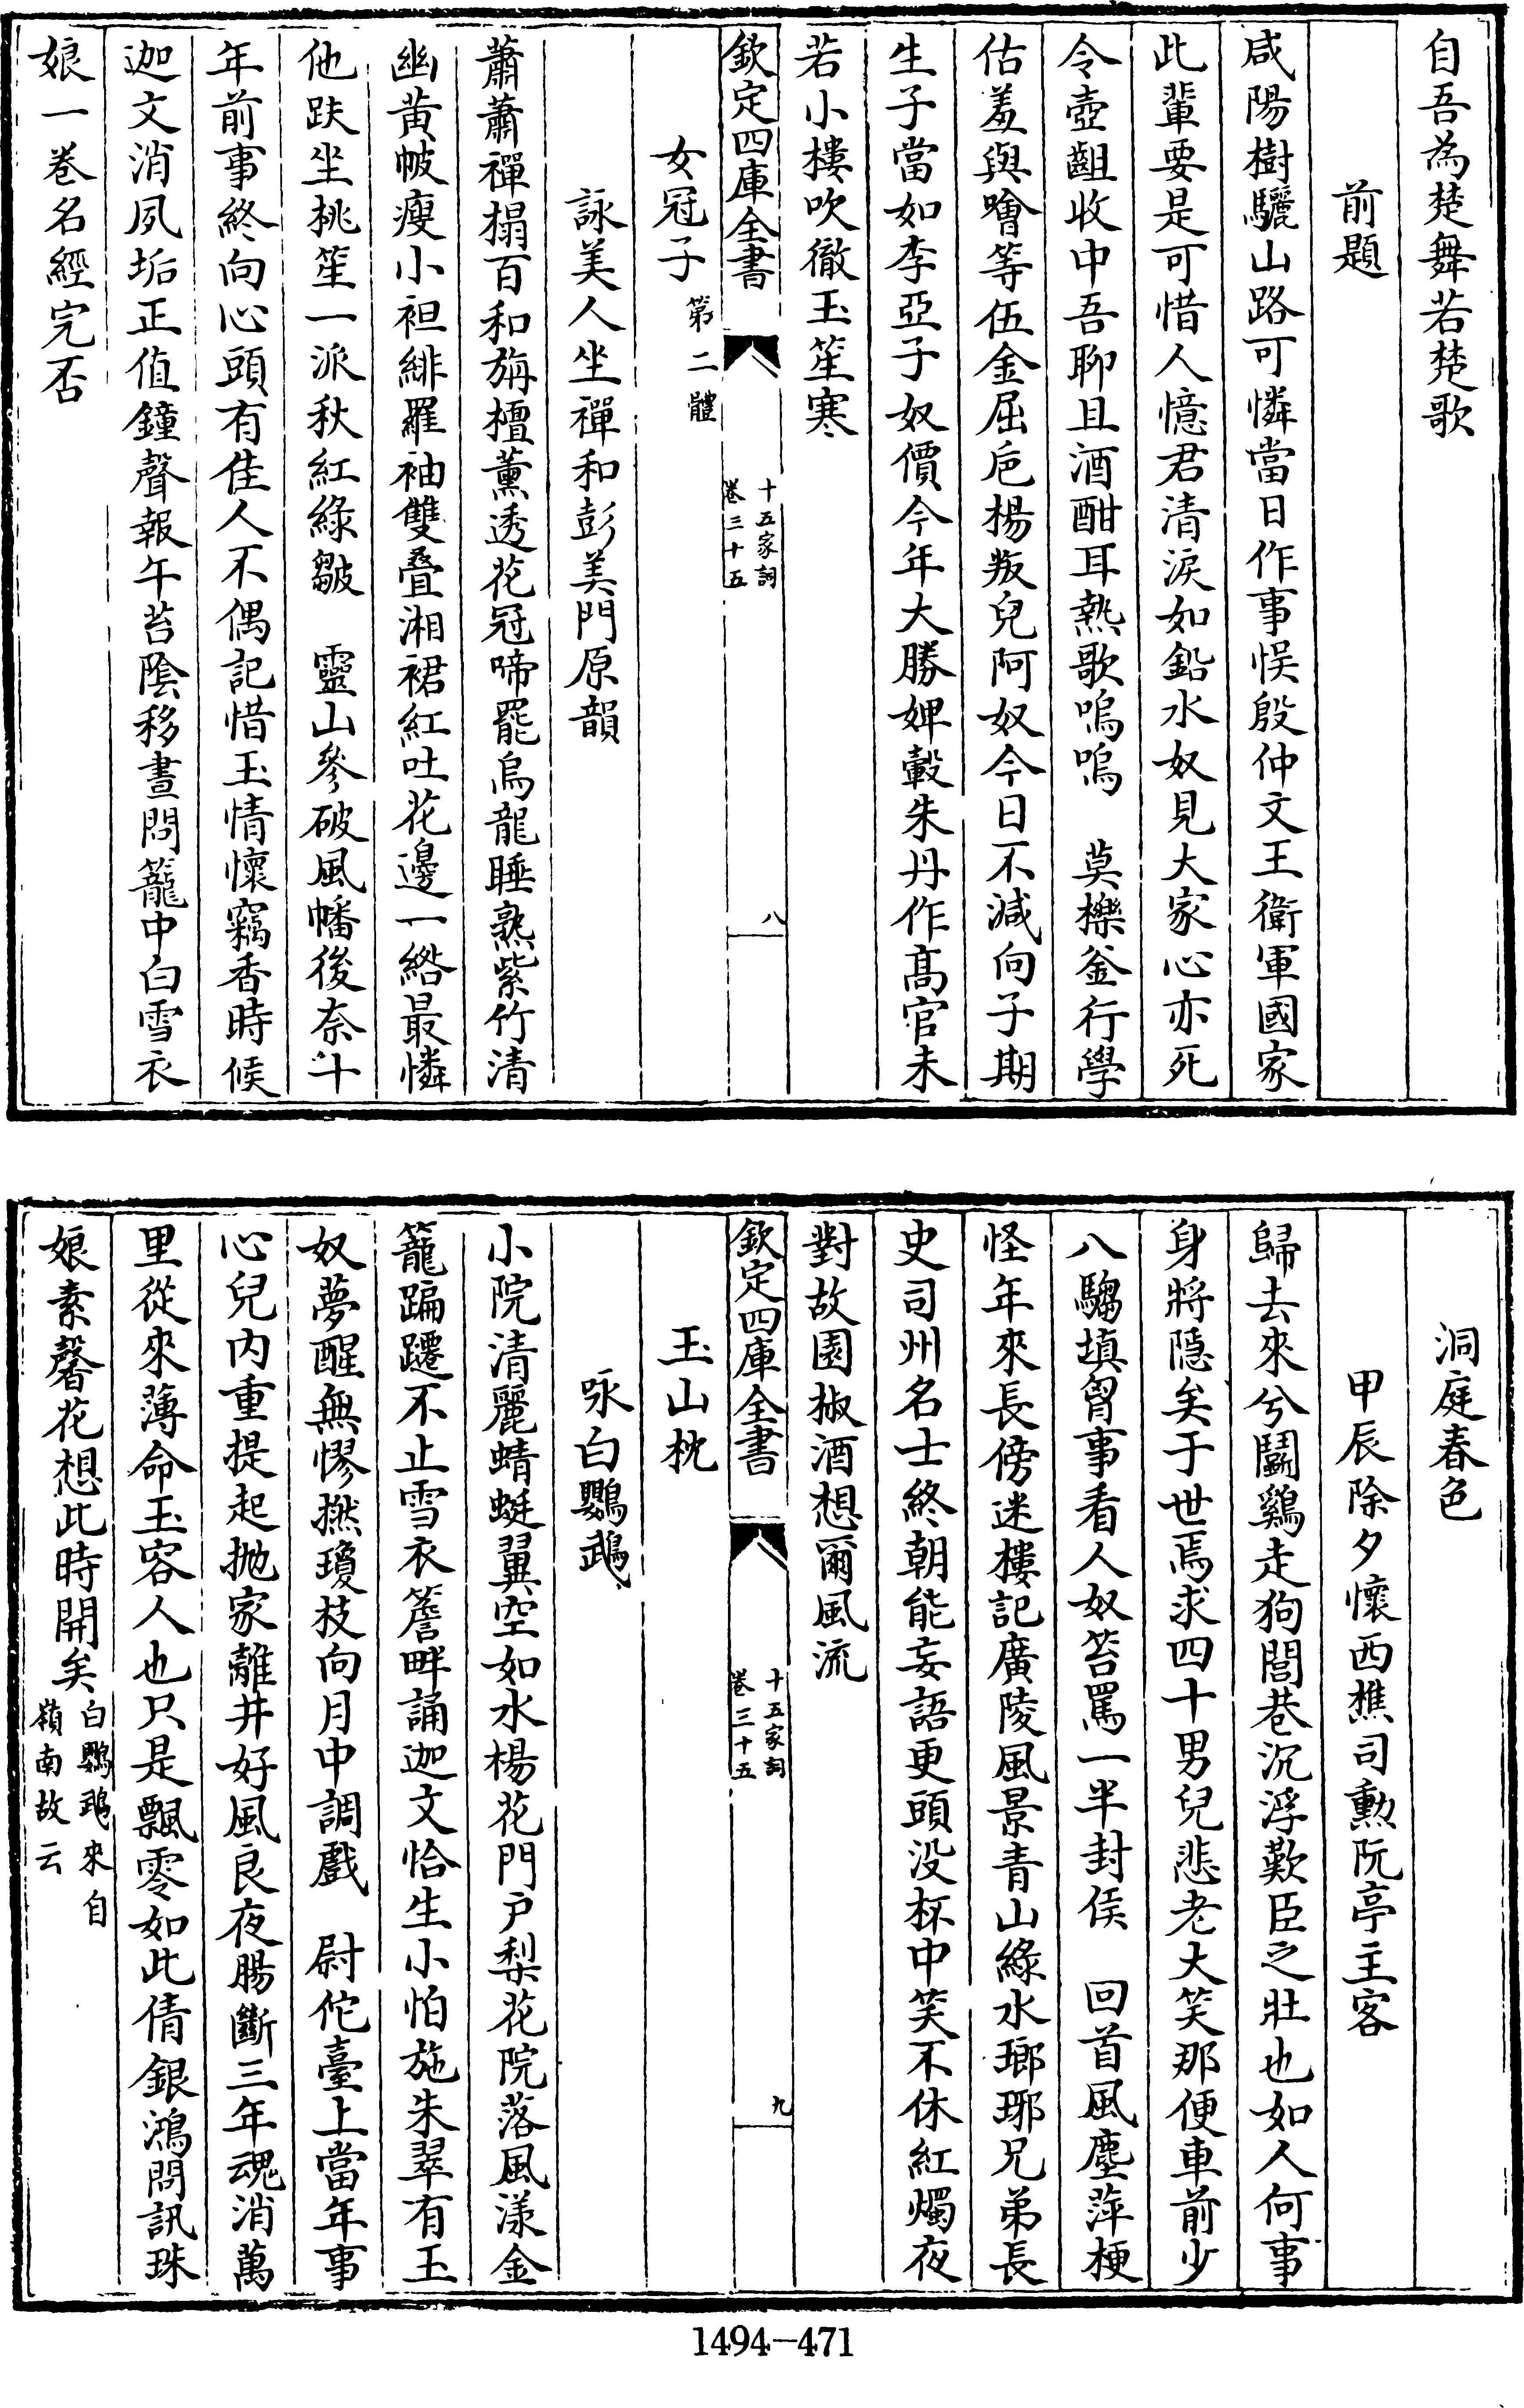 自吾為楚舞若楚歌
前題
咸陽樹驪山路可憐當日作事悮殷仲文王衛軍國家
此輩要是可惜人憶君清淚如鉛水奴見大家心亦死
令壺齟收中吾聊且酒酣耳熱歌嗚嗚　莫櫟釜行學
估羞與噲等伍金屈卮楊叛兒阿奴今日不減向子期
生子當如李亞子奴價今年大勝婢轂朱丹作髙官未
若小樓吹徹玉笙寒
欽定四庫全書
十五家詞
卷三十五
八
女冠子第二體
詠美人坐禪和彭羡門原韻
蕭蕭禪榻百和旃檀薰透花冠啼罷烏龍睡熟紫竹清
幽黃帔瘦小袒緋羅袖雙叠湘裙紅吐花邊一綹最憐
他趺坐桃笙一派秋紅綠皺　靈山參破風幡後奈斗
年前事終向心頭有佳人不偶記惜玉情懷竊香時候
迦文消夙垢正值鐘聲報午苔陰移晝問籠中白雪衣
娘一卷名經完否
洞庭春色
甲辰除夕懷西樵司勲阮亭主客
歸去來兮鬭鷄走狗閭巷沉浮歎臣之壯也如人何事
身將隐矣于世焉求四十男兒悲老大笑那便車前少
八騶填胷事看人奴笞罵一半封侯　回首風塵萍梗
怪年來長傍迷樓記廣陵風景青山綠水瑯琊兄弟長
史司州名士終朝能妄語更頭没杯中笑不休紅燭夜
對故園椒酒想爾風流
欽定四庫全書
十五家詞
卷三十五
九
玉山枕
咏白鸚鵡
小院清麗蜻蜓翼空如水楊花門户梨花院落風漾金
籠蹁躚不止雪衣簷畔誦迦文恰生小怕施朱翠有玉
奴夢醒無憀撚瓊枝向月中調戲　尉佗臺上當年事
心兒内重提起抛家離井好風良夜腸斷三年魂消萬
里從來薄命玉容人也只是飄零如此倩銀鴻問訊珠
娘素馨花想此時開矣白鸚鵡來自
嶺南故云
1494-471